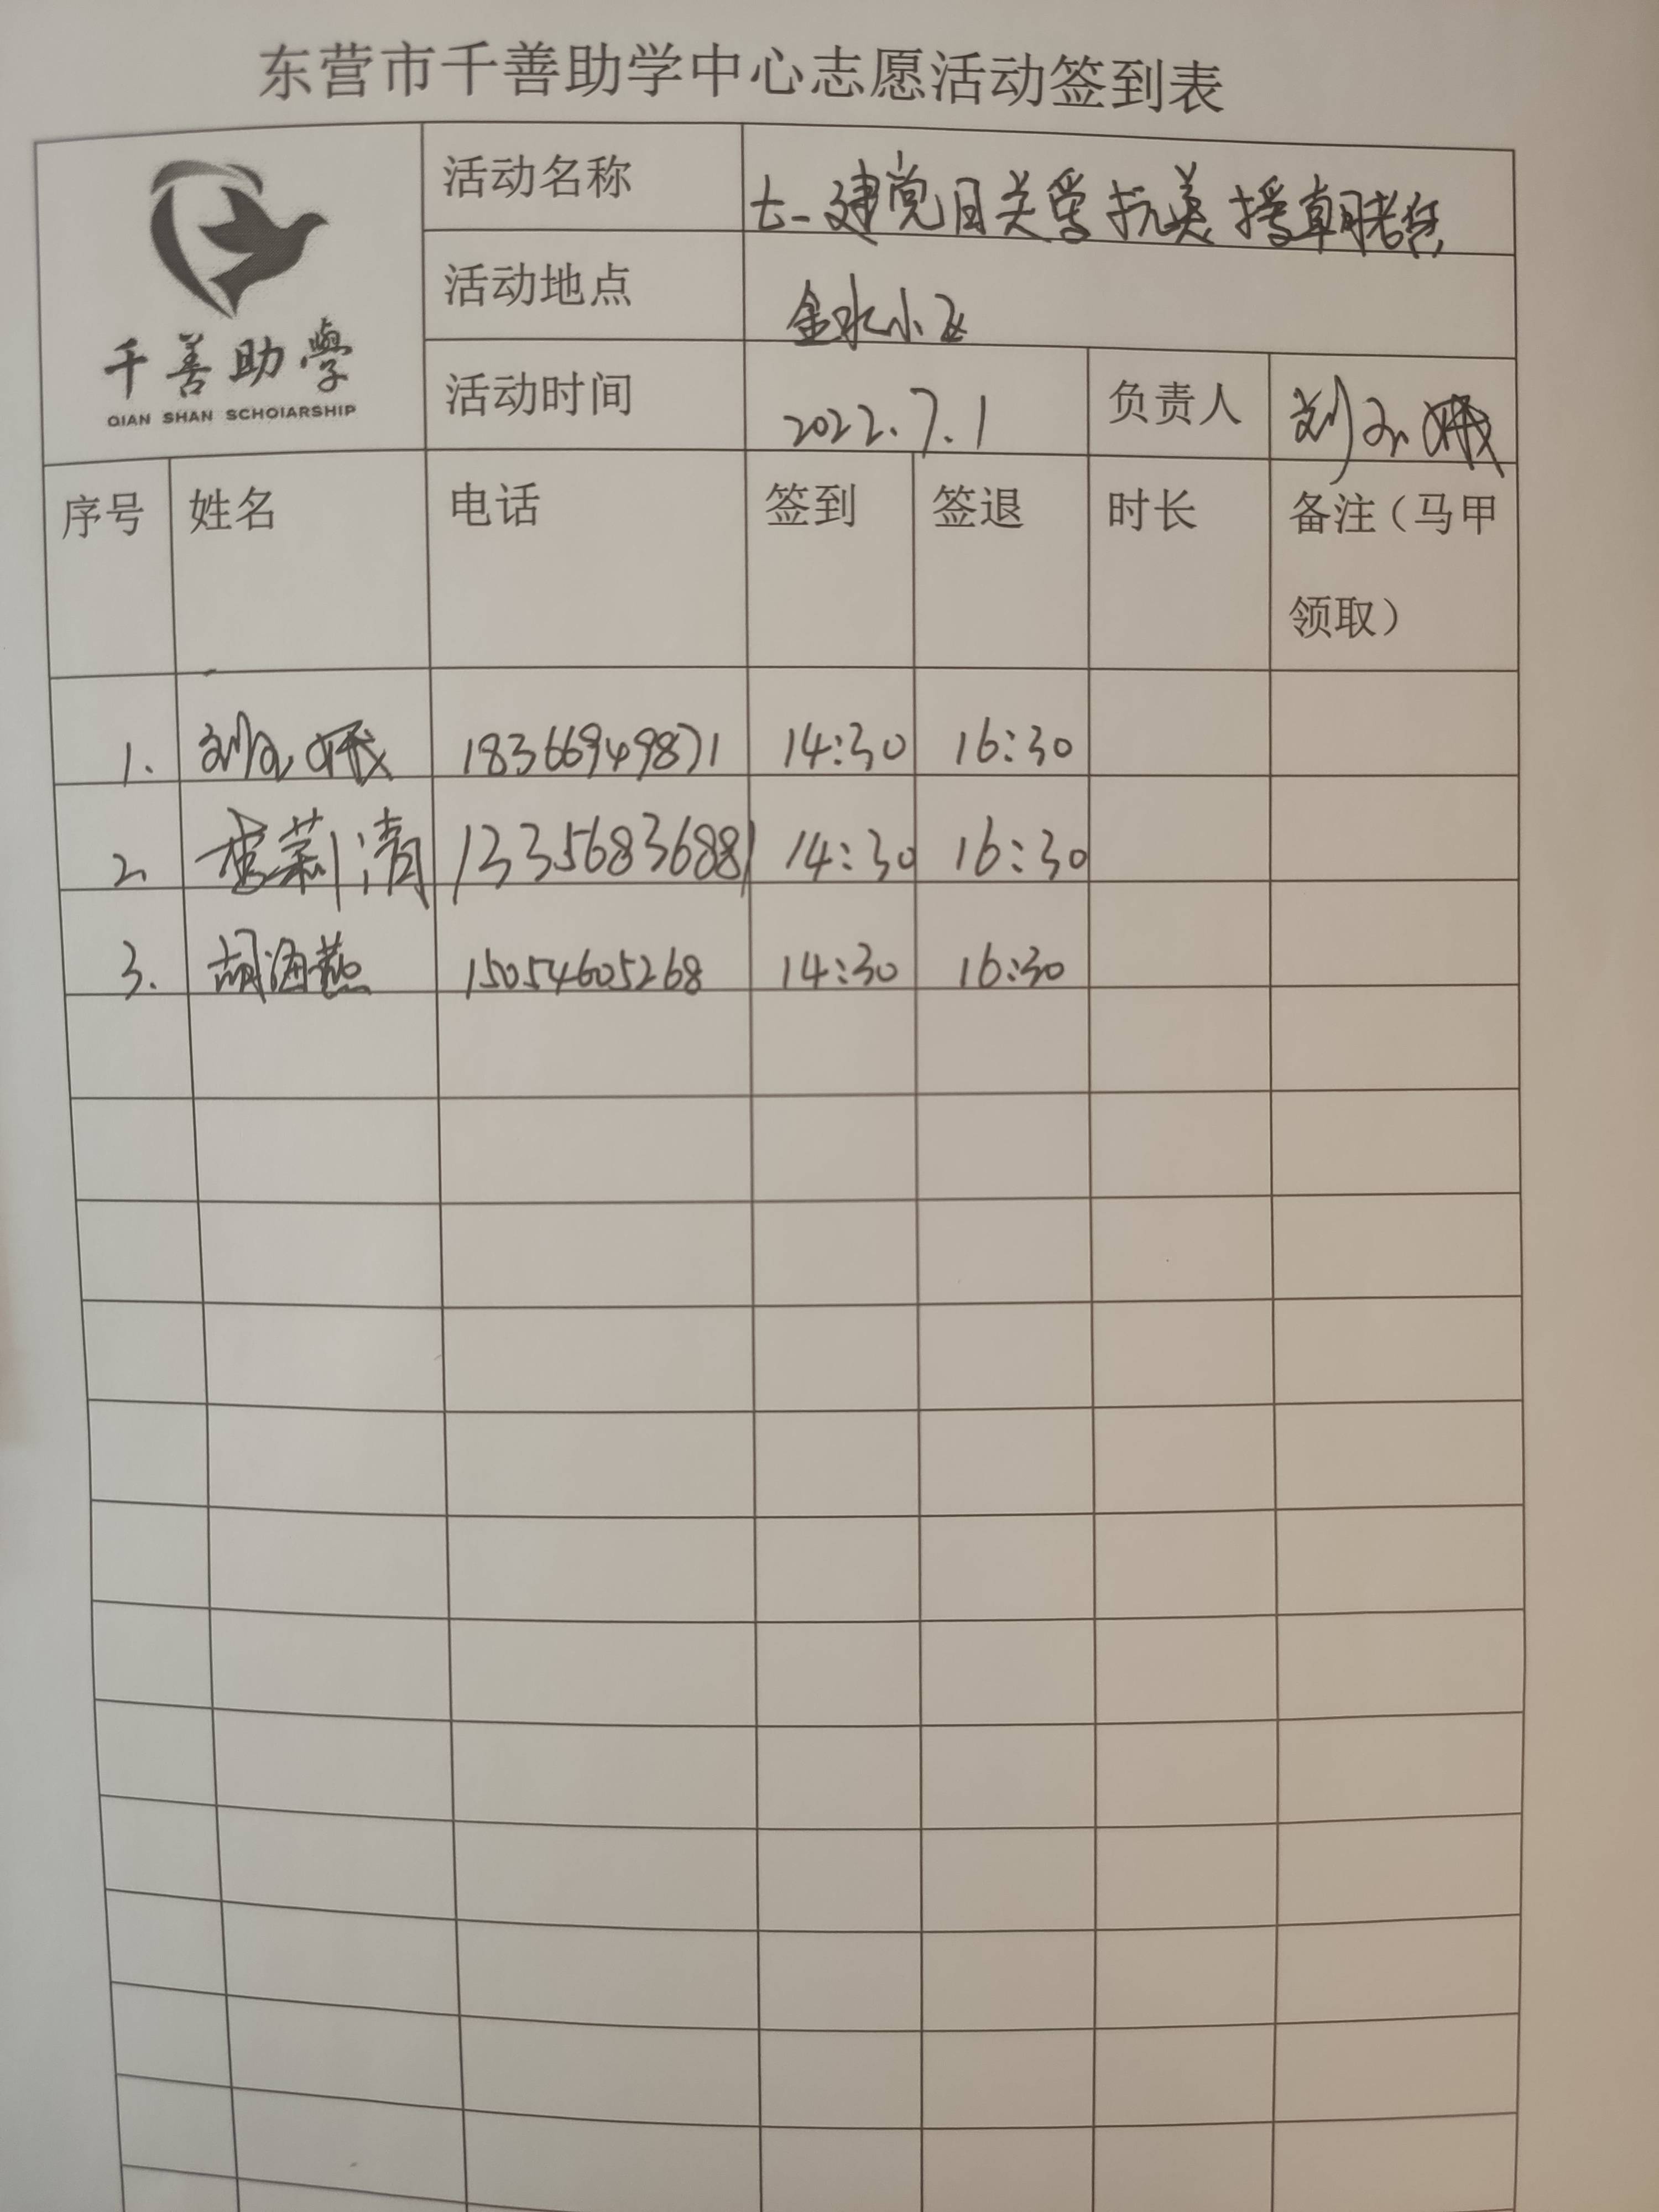 东营市千善助学中心志愿活动签到表
千善助學
QIAN SHAN SCHOlARSHIP
活动名称 七一建党日关爱抗美援朝老兵
活动地点 金水小区
活动时间 2022.7.1 负责人 刘
序号 姓名 电话 签到 签退 时长 备注（马甲
领取）
1. 刘 18366949871 14:30 16:30
2 莉清 13356836881 14:30 16:30
3. 胡海燕 15054605268 14:30 16:30